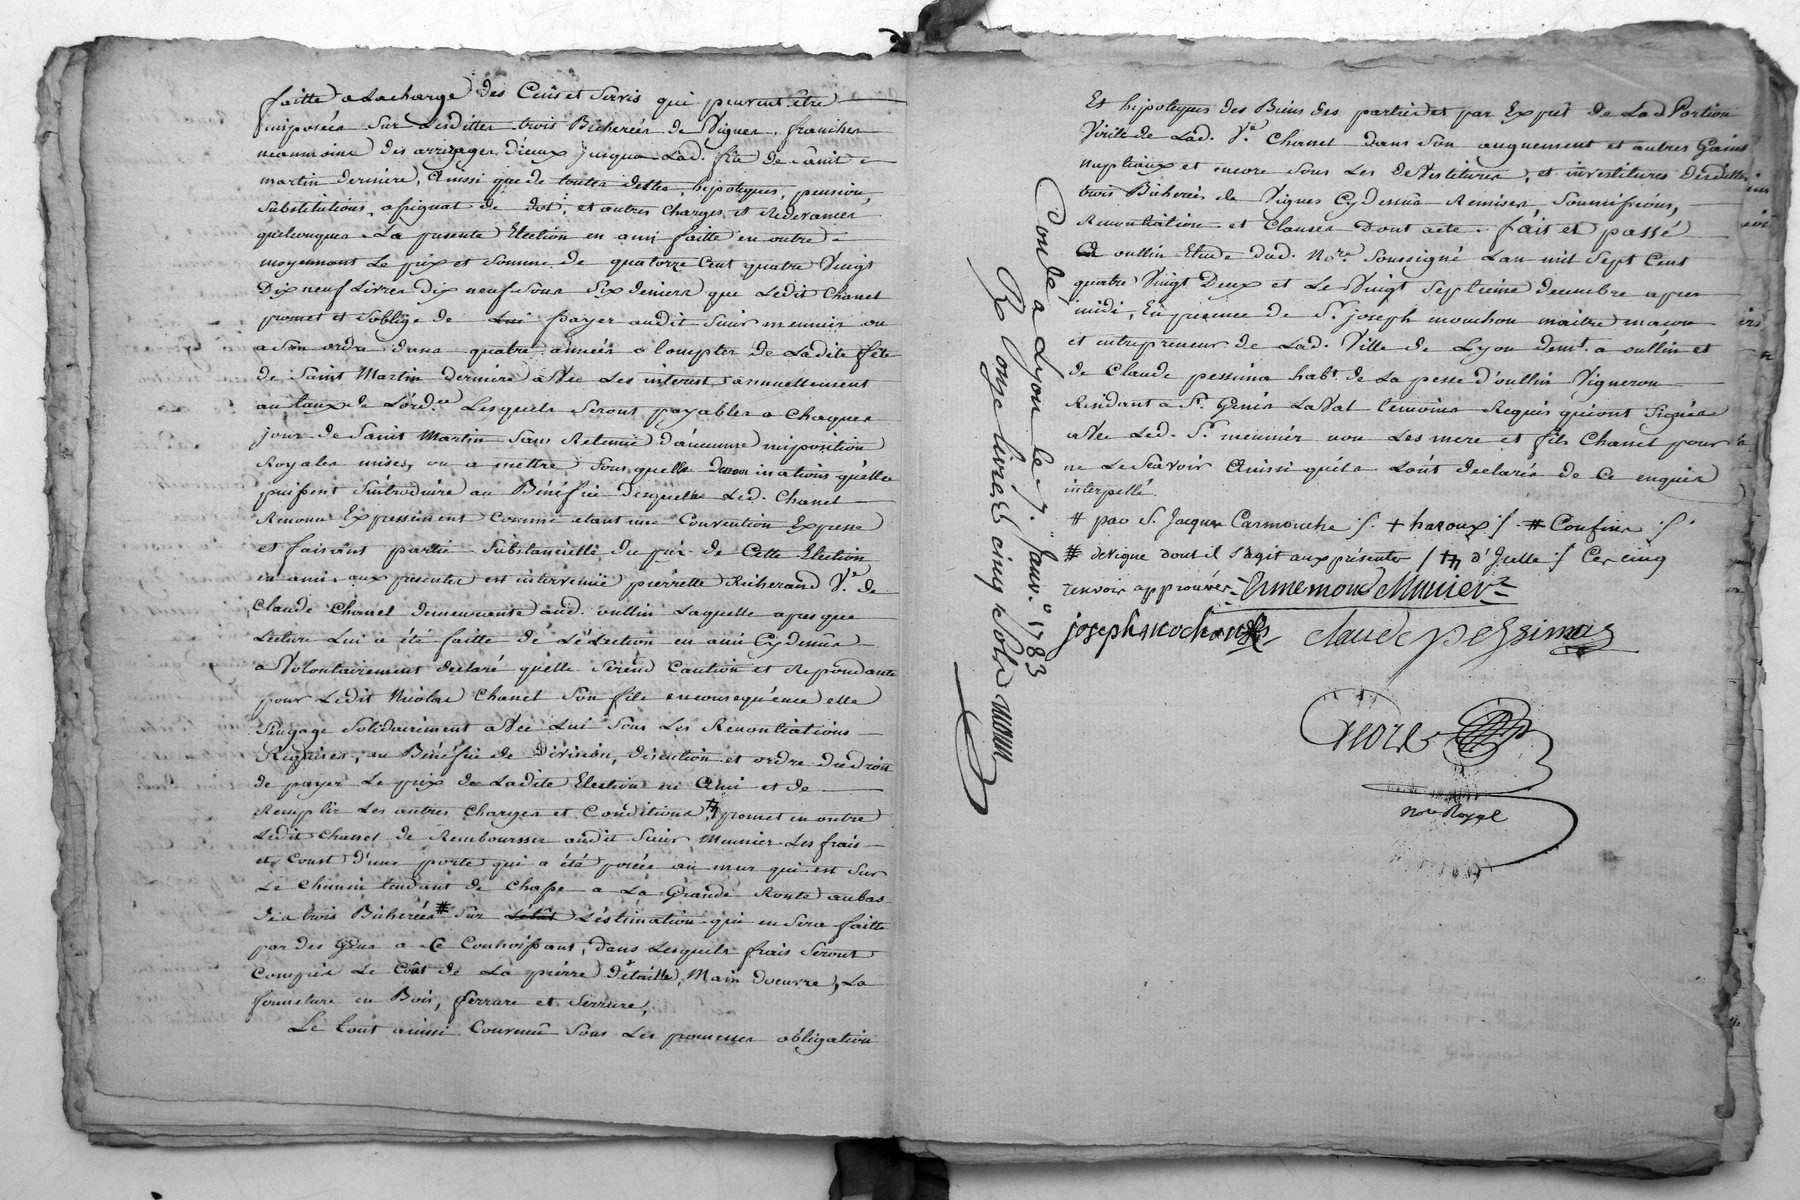 faitte a la charge des Cens et Servis qui peuvent être
imposés Sur Lesdittes trois Bicherées de Vignes, franches
neanmoins des arrerages d'iceux jusqua Lad. fête de Saint
martin derniere, Ainsi que de toutes dettes, hipoteques, pension,
Substitutions, assignat de dot, et autres charges et Redevances
quelconques. La presente Election en ami faitte en outre
moyennant Le prix et Somme de quatorze Cent quatre Vingt
Dix neuf Livres dix neuf Sous Six deniers que Ledit Chanel
promet et S'oblige de payer audit Sieur meunier ou
a Son ordre dans quatre années a Compter de Ladite fête
de Saint Martin derniere avec Les interest annuellement
au taux de L'ord.ce Lesquels Seront payables a Chaques
jour de Saint Martin Sans Retenue d'aucunne imposition
Royales mises, ou a mettre Sous quelle denominations qu'elles
puissent S'introduire au Bénéfice desquelles Led. Chanel
Renonce Expressement Comme etant une Convention Expresse
et faisant partie Substancielle du prix de Cette Election
en ami. aux presentes est intervenue pierrette Richerand V.e de
Claude Chanel demeurante aud. oullin Laquelle apres que
Lecture Lui a été faitte de L'élection en ami Cydessus
a Volontairement declaré qu'elle Se rend Caution et Repondante
pour Ledit Nicolas Chanel Son fils en consequence elle
S'engage Solidairement avec Lui Sous Les Renontiations
Requises, au Bénéfice de Division, discution et ordre de droit
de payer Le prix de Ladite Election en Ami et de
Remplir Les autres Charges et Conditions promet en outre
Ledit Chanel de Rembourser audit Sieur Munier Les frais
et Coust d'une porte qui a été posée au mur qui est Sur
Le Chemin tendant de Chasse a La Grande Route au bas
des trois Bicherées # Sur L'éstimation qui en Sera faitte
par des Gens a Ce Connoissant, dans Lesquels frais Seront
Compris Le Coût de La pierre détaille, Main d'oeuvre, La
fermeture en Bois, ferrure et Serrure,
Le tout ainsi Convenû Sous Les promesses obligation
Et hipoteques des Biens des parties et par Exprès de Lad Portion
Virile de Lad. V.e Chanel dans Son augmement et autres Gains
nuptiaux et encore Sous Les deVestitures, et investitures desdittes
trois Bicherées de Vignes Cydessus Remises, Soumissions,
Renontiation et Clauses Dont acte. fait et passé
oullin Etude dud. No.re Soussigné L'an mil Sept Cent
quatre Vingt Deux et Le Vingt Septieme decembre apres
midi, En presence de S.r joseph mouchon maitre macon
et intrepreneur de Lad. Ville de Lyon dem.t a oullin et
de Claude pessima hab.t de La pesse d'oullin Vigneron
Residant a S.t Genis LaVal temoins Requis qui ont Signés
avec Led. S.r meunier non Les mere et fils Chanel pour
ne Le Scavoir Ainsi qu'ils L'ont declarés de Ce enquis
interpellé.
# pao S. Jacques Carmouche /. + haroux /. # Confins /.
# devigne dont il S'agit aux présentes / ## d'Julle / Ces cinq
renvois approuvés. Munier
joseph mochon claude pessima
No.re Royal
Conlé a Lyon le 7. Janv.o 1783
R. onze livres cinq sols